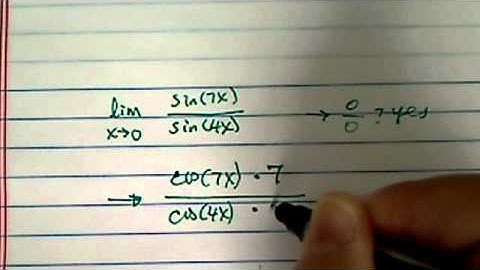 lim x→0 sin(7x) / sin(4x) → 0/0 ? yes
→ cos(7x) · 7 / cos(4x) ·